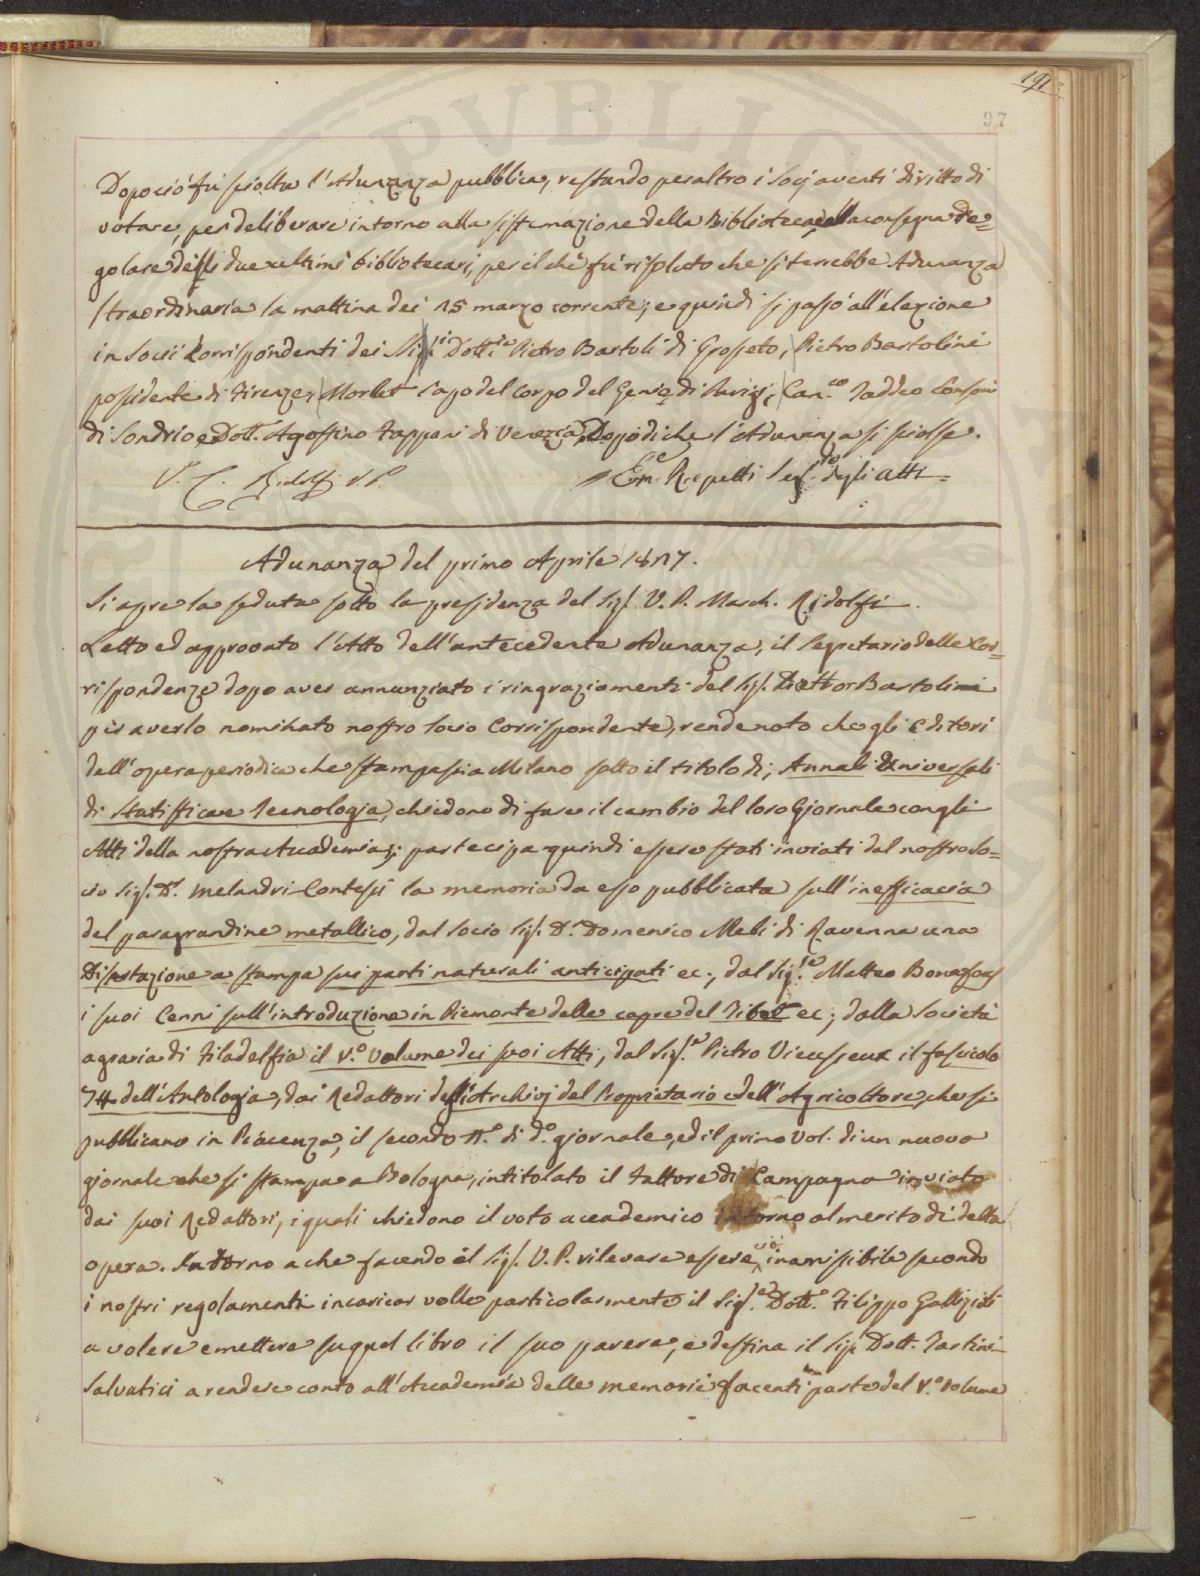 191
97
Dopociò fu sciolta l'Adunanza pubblica, restando peraltro i Socj aventi diritto di
votare, per deliberare intorno alla sistemazione della Biblioteca, e alla consegna re=
golare degli due ultimi bibliotecarj, per il chè fu risoluto che si terrebbe Adunanza
straordinaria la mattina dei 15 marzo corrente; e quindi si passò all'elezione
in Socii Corrispondenti dei Sigri Dottri Pietro Bartoli di Grosseto, Pietro Bartolini
possidente di Firenze, Morlet Capo del Corpo del Genio di Parigi, Can.co Taddeo Consoni
di Sondrio e Dott. Agostino Fappani di Venezia. Dopodiche l'Adunanza si sciolse.
V. C. Ridolfi V P.
Em. Repetti Seg.rio degli atti=
Adunanza del primo Aprile 1827.
Si apre la seduta sotto la presidenza del Sig. V. P. March. Ridolfi.
Letto ed approvato l'Atto dell'antecedente Adunanza, il Segretario delle Cor=
rispondenze dopo aver annunziato i ringraziamenti del Sig. Dottor Bartolini
per averlo nominato nostro Socio Corrispondente, rende noto che gli Editori
dell'opera periodica che stampasi a Milano sotto il titolo di; Annali Universali
di Statistica e Tecnologia, chiedono di fare il cambio del loro Giornale con gli
Atti della nostra Accademia; partecipa quindi essere stati inviati dal nostro So=
cio Sig. Dr. Melandri Contessi la memoria da esso pubblicata sull'inefficacia
del paragrandine metallico, dal Socio Sig. Dr. Domenico Meli di Ravenna una
Disertazione a stampa sui parti naturali anticipati ec., dal Sig.re Matteo Bonafous
i suoi Cenni sull'introduzione in Piemonte delle capre del Tibet ec; dalla Società
agraria di Filadelfia il V.o volume dei suoi Atti, dal Sig.re Pietro Vieusseux il fascicolo
74 dell'Antologia, dai Redattori degli Archivj del Proprietario e dell'Agricoltore, che si
pubblicano in Piacenza, il secondo N.o di d.o giornale, ed il primo vol. di un nuovo
giornale che si stampa a Bologna, intitolato il Fattore di Campagna inviato
dai suoi Redattori, i quali chiedono il voto accademico intorno al merito di della
opera. Intorno a che facendo il Sig. V. P. rilevare essere ciò inamissibile secondo
i nostri regolamenti incaricar volle particolarmente il Sig.re Dott.e Filippo Gallizioli
a volere emettere su quel libro il suo parere, e destina il Sig. Dott. Tartini
Salvatici a rendere conto all'Accademia delle memorie facenti parte del V.o volume